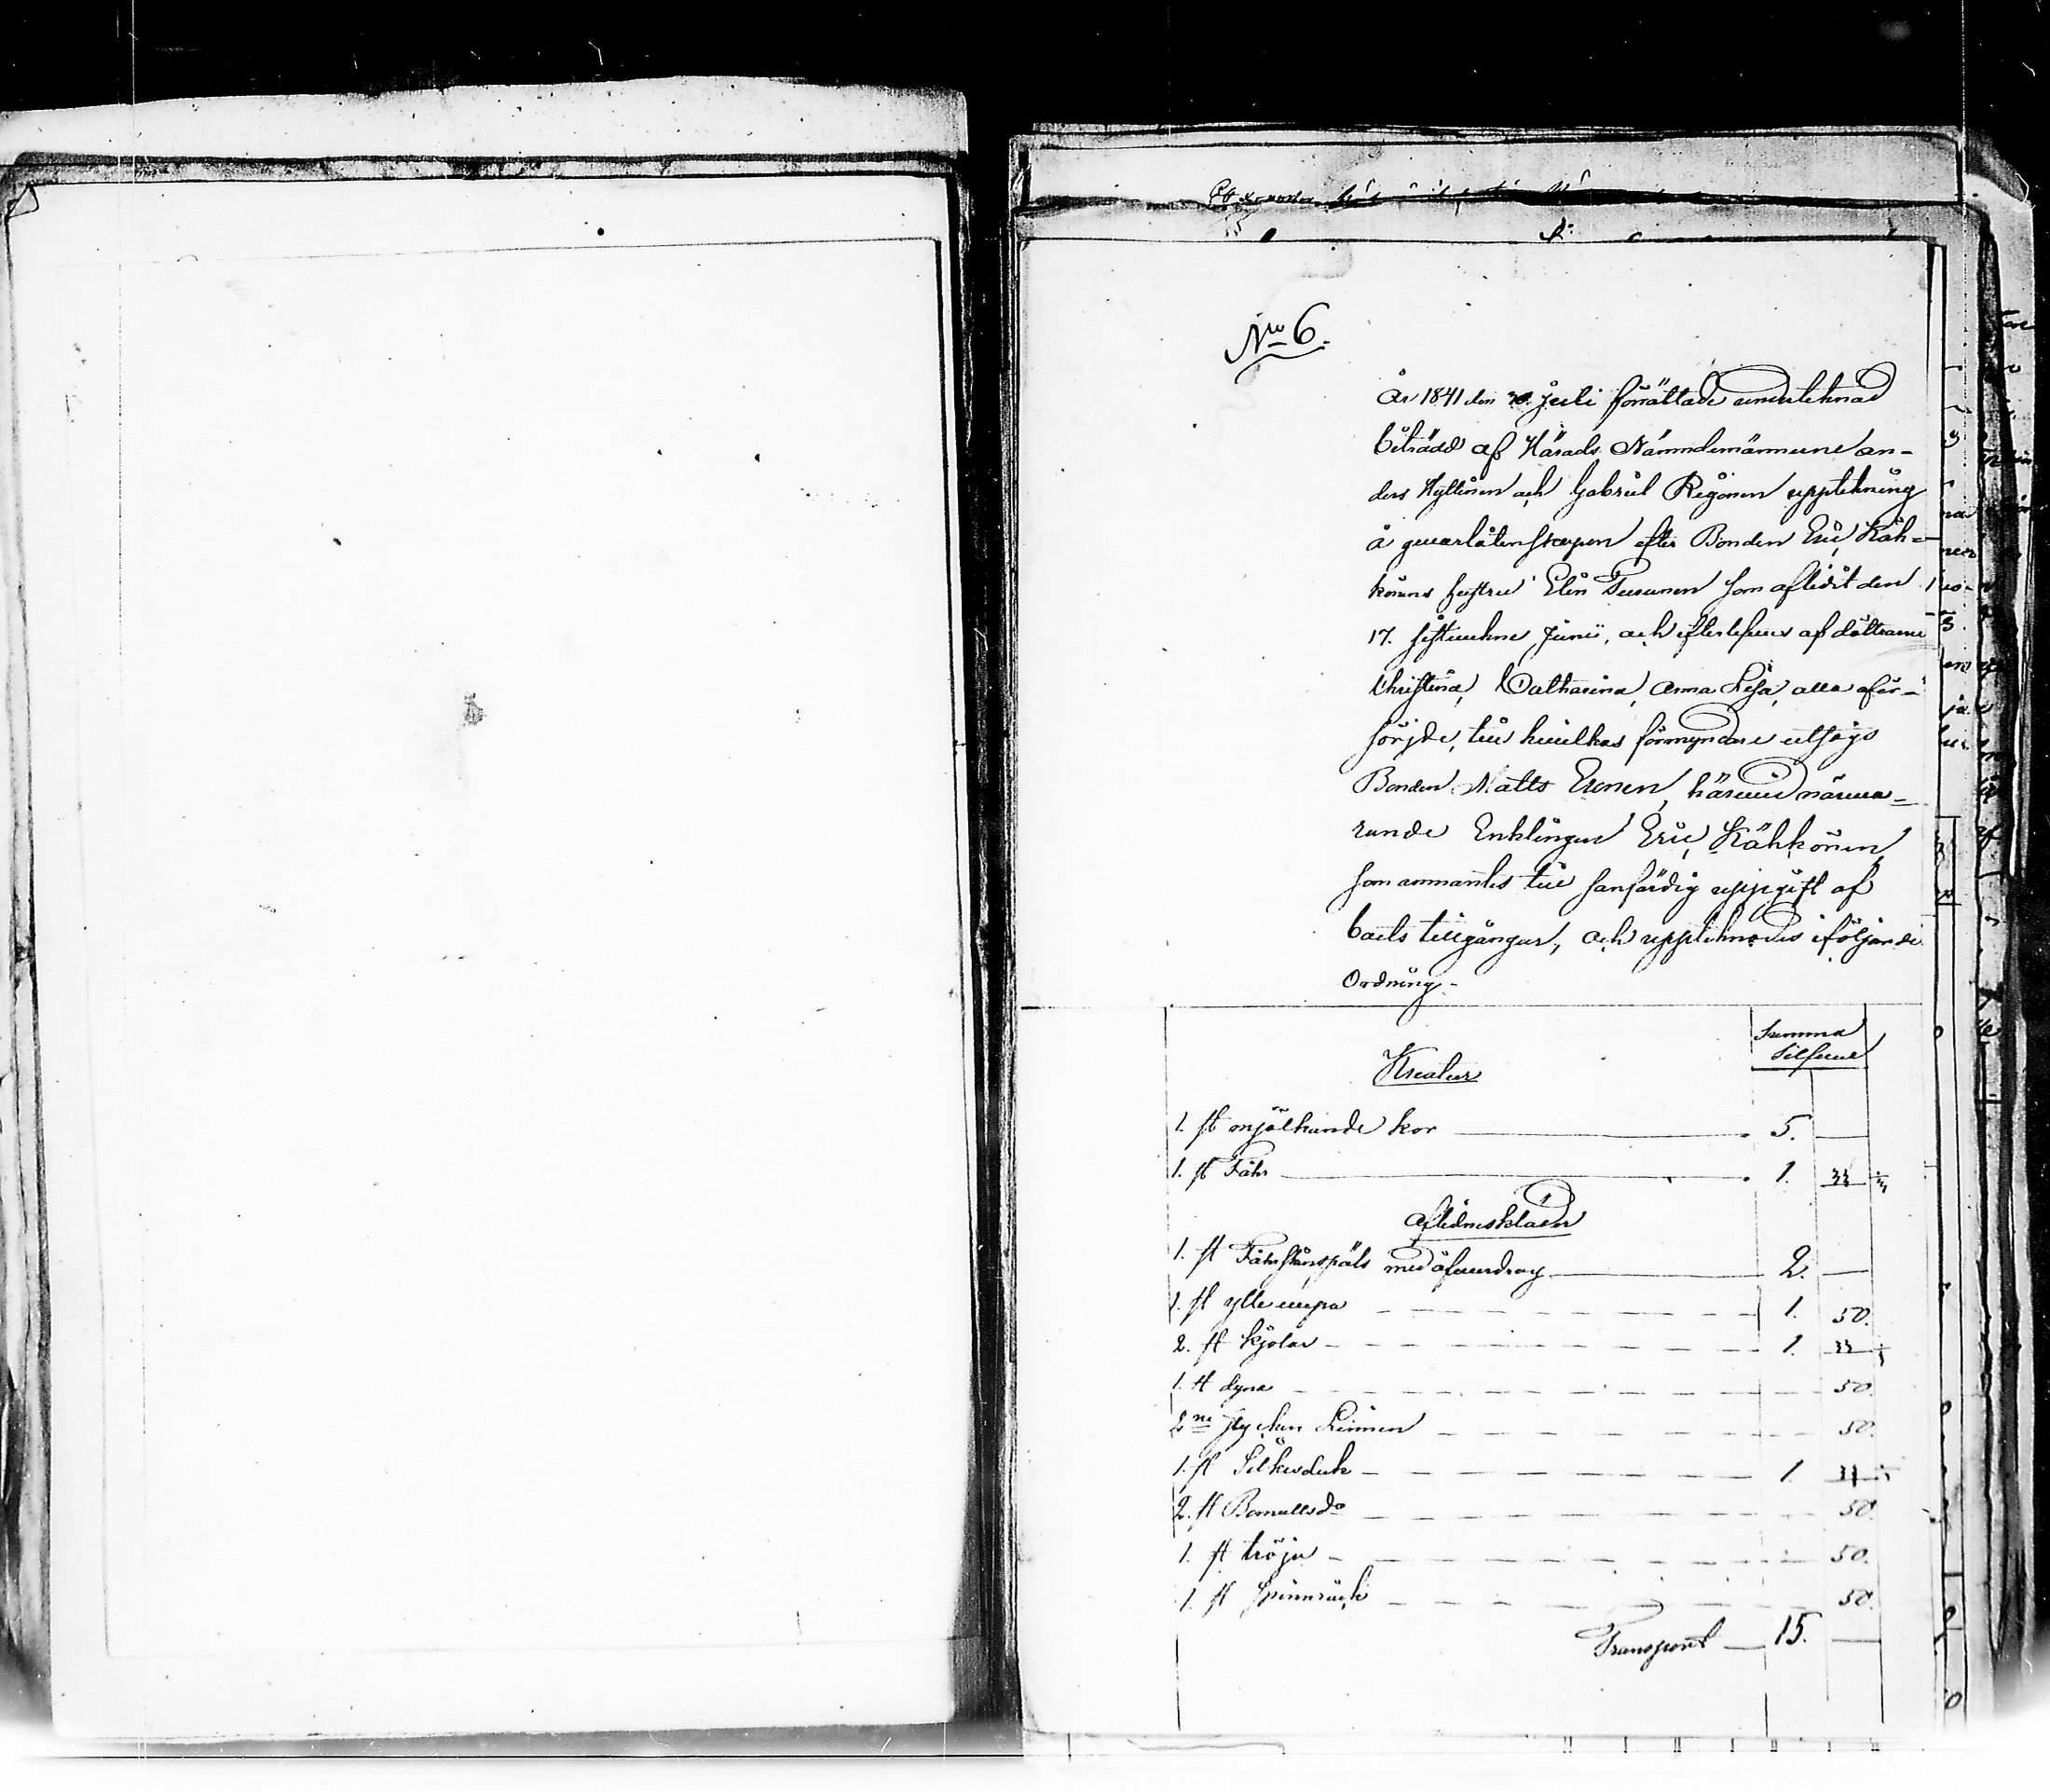 No 6.
År 1841 den 30. Juli förrättade undertecknad
biträdd af Härads Nämndemännerne An-
ders Hyttinen och Gabriel Rejonen uppteckning
å qvarlåtenskapen efter Bonden Eric Käh-
könens hustru Elin Turunen som aflidit den
17. sistvekne Junii, och efterlefves af döttrarne
Christina, Catharina, Anna Lisa, alla oför-
sörjde, till hvilkas förmyndare utsågs
Bonden Matts Eronen, härvid närva-
rande Enklingen Eric Kähkönen
som anmantes till sanfärdig uppgift af
boets tillgångar, och upptecknades i följande
Ordning.
Summa
Silfver
Kreatur
1. st mjölkande kor 5. —
1. st Fåhr 1. 33 1/3
Aflidnes kläder
1. st Fåhrskinspäls med öfverdrag 2. —
1. st ylle vepa 1. 50.
2. st kjolar 1. 33 1/3
1. st dyna 50.
2ne stycken Linnen 50.
1. st Silkesduk 1. 33 1/3
2. st Bomulls do 50.
1. st tröja 50.
1. st Spinnråck 50.
Transport 15. —